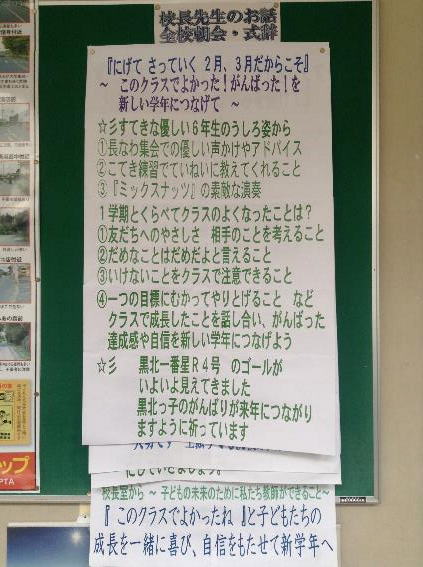 校長先生のお話
全校朝会・式辞
『にげて さっていく 2月、3月だからこそ』
～ このクラスでよかった！がんばった！を
新しい学年につなげて ～
☆彡すてきな優しい６年生のうしろ姿から
①長なわ集会での優しい声かけやアドバイス
②こてき練習でていねいに教えてくれること
③『ミックスナッツ』の素敵な演奏
１学期とくらべてクラスのよくなったことは？
①友だちへのやさしさ 相手のことを考えること
②だめなことはだめだよと言えること
③いけないことをクラスで注意できること
④一つの目標にむかってやりとげること など
クラスで成長したことを話し合い、がんばった
達成感や自信を新しい学年につなげよう
☆彡 黒北一番星Ｒ４号 のゴールが
いよいよ見えてきました
黒北っ子のがんばりが来年につながり
ますように祈っています
にしていきましょう。
校長室から ～ 子どもの未来のために私たち教師ができること～
『 このクラスでよかったね 』と子どもたちの
成長を一緒に喜び、自信をもたせて新学年へ
ップ
PTA